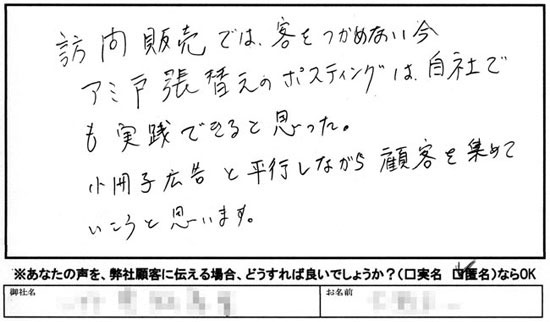 訪問販売では、客をつかめない今
アミ戸張替えのポスティングは、自社で
も実践できると思った。
小冊子広告と平行しながら顧客を集めて
いこうと思います。
※あなたの声を、弊社顧客に伝える場合、どうすれば良いでしょうか？(口実名 ☑匿名)ならOK
御社名
お名前